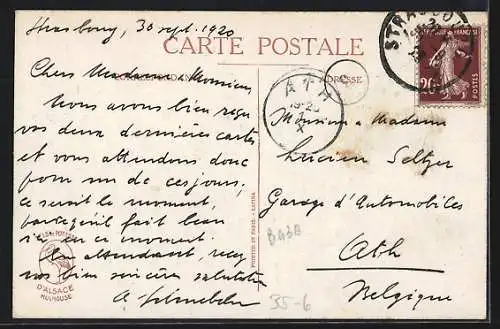 Strasbourg, 30 sept. 1920
CARTE POSTALE
CORRESPONDANCE
ADRESSE
Cher Madame & Monsieur,
Nous avons bien reçu
vos deux dernières cartes
et vous attendons donc
pour un de ces jours;
ce serait le moment,
parcequ'il fait beau
ici en ce moment.
En attendant, recevez
nos bien sincères salutations
A.
Monsieur & Madame
Lucien Seltzer
Garage d'Automobiles
Ath
Belgique
B43B
35-6
STRASBOURG
REPUBLIQUE FRANÇAISE
20
POSTES
ATH
X
D'ALSACE
MULHOUSE